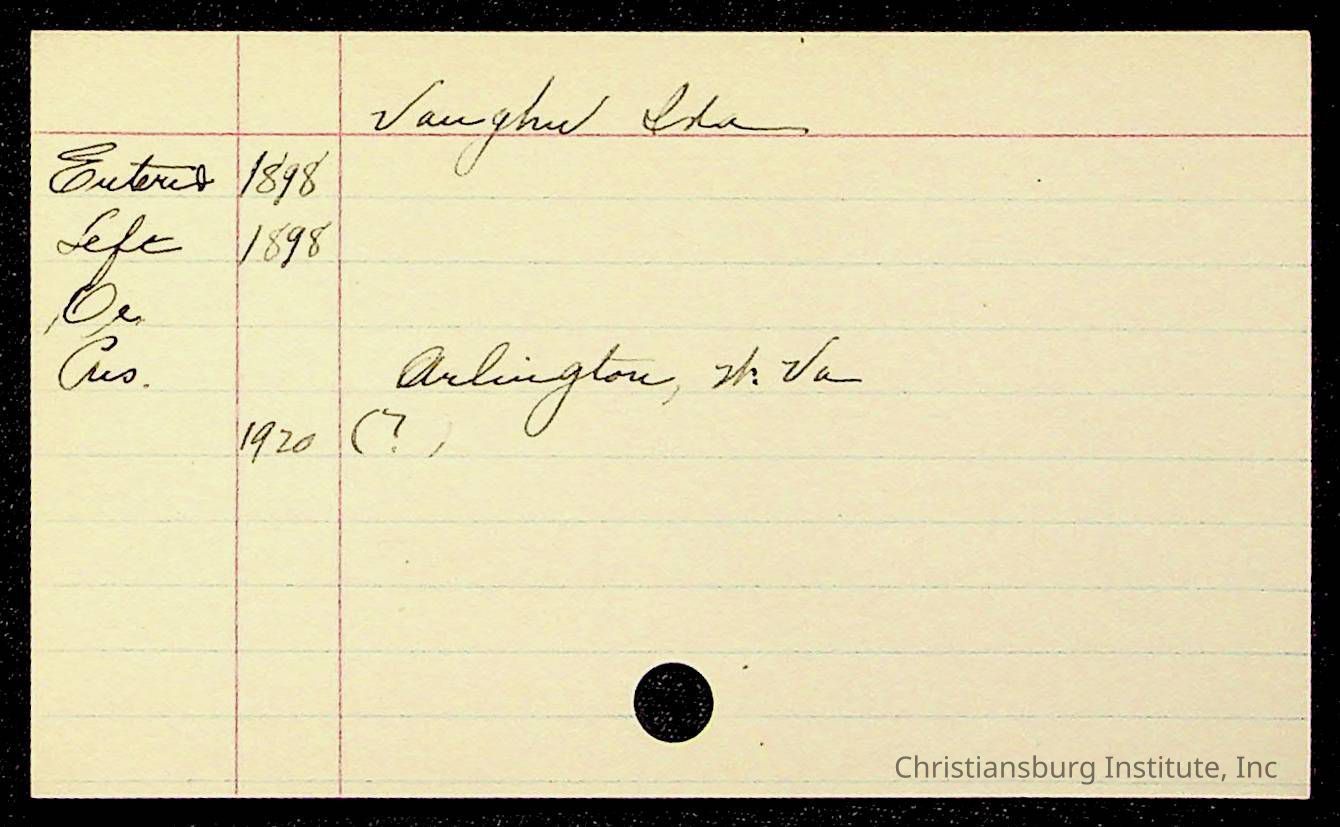 Vaughn Ida
Entered 1898
Left 1898
Oc.
Arlington, W. Va
1920 (?)
Christiansburg Institute, Inc